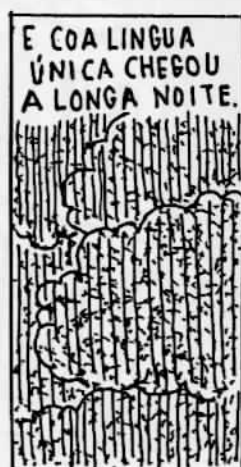 E COA LINGUA
ÚNICA CHEGOU
A LONGA NOITE.